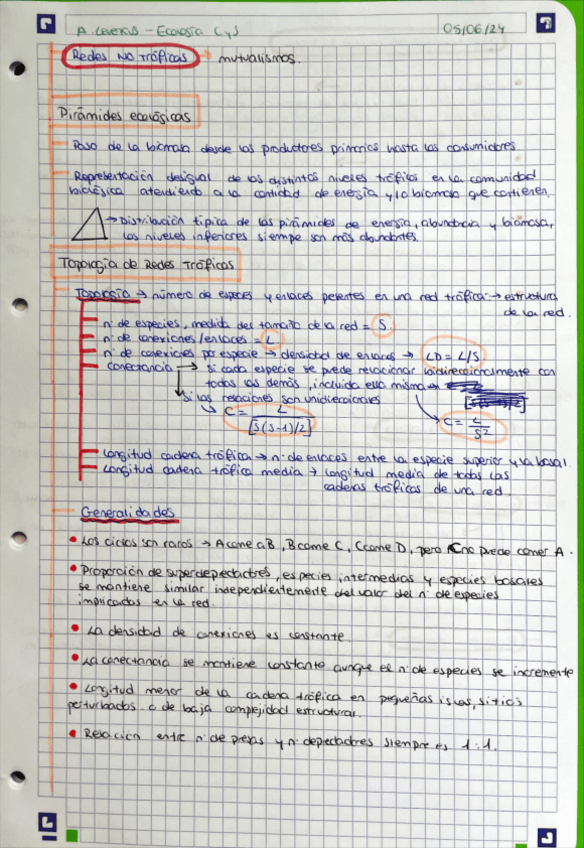 A. Leverus - Ecología C y S 05/06/24
Redes No tróficas → mutualismos.
Pirámides ecológicas
Paso de la biomasa desde los productores primarios hasta los consumidores
Representación desigual de los distintos niveles tróficos en la comunidad
biológica atendiendo a la cantidad de energía y/o biomasa que contienen.
→ Distribución típica de las pirámides de energía, abundancia y biomasa,
los niveles inferiores siempe son más abundantes.
Topología de Redes Tróficas
Topología → número de especes y enlaces petentes en una red trófica → estructura
de la red.
nº de especies, medida del tamaño de la red = S.
nº de conexiones/enlaces = L
nº de conexiones por especie → densidad de enlaces → LD = L/S
conectancia → si cada especie se puede relacionar bidireccionalmente con
todas las demás, incluida ella misma
si las relaciones son unidireccionales
C = L / [S(S-1)/2]
C = L / S²
Longitud cadena trófica → nº de enlaces entre la especie superior y la basal
Longitud cadena trófica media → longitud media de todas las
cadenas tróficas de una red
Generalidades
• Los ciclos son raros → A come a B, B come C, C come D, pero C no puede comer A.
• Proporción de superdepectadores, especies intermedias y especies basales
se mantiene similar independientemente del valor del nº de especies
implicadas en la red.
• La densidad de conexiones es constante
• La conectancia se mantiene constante aunque el nº de especies se incremente
• Longitud menor de la cadena trófica en pequeñas islas, sitios
perturbados o de baja complejidad estructural.
• Relación entre nº de presas y nº depectadores siempre es 1:1.